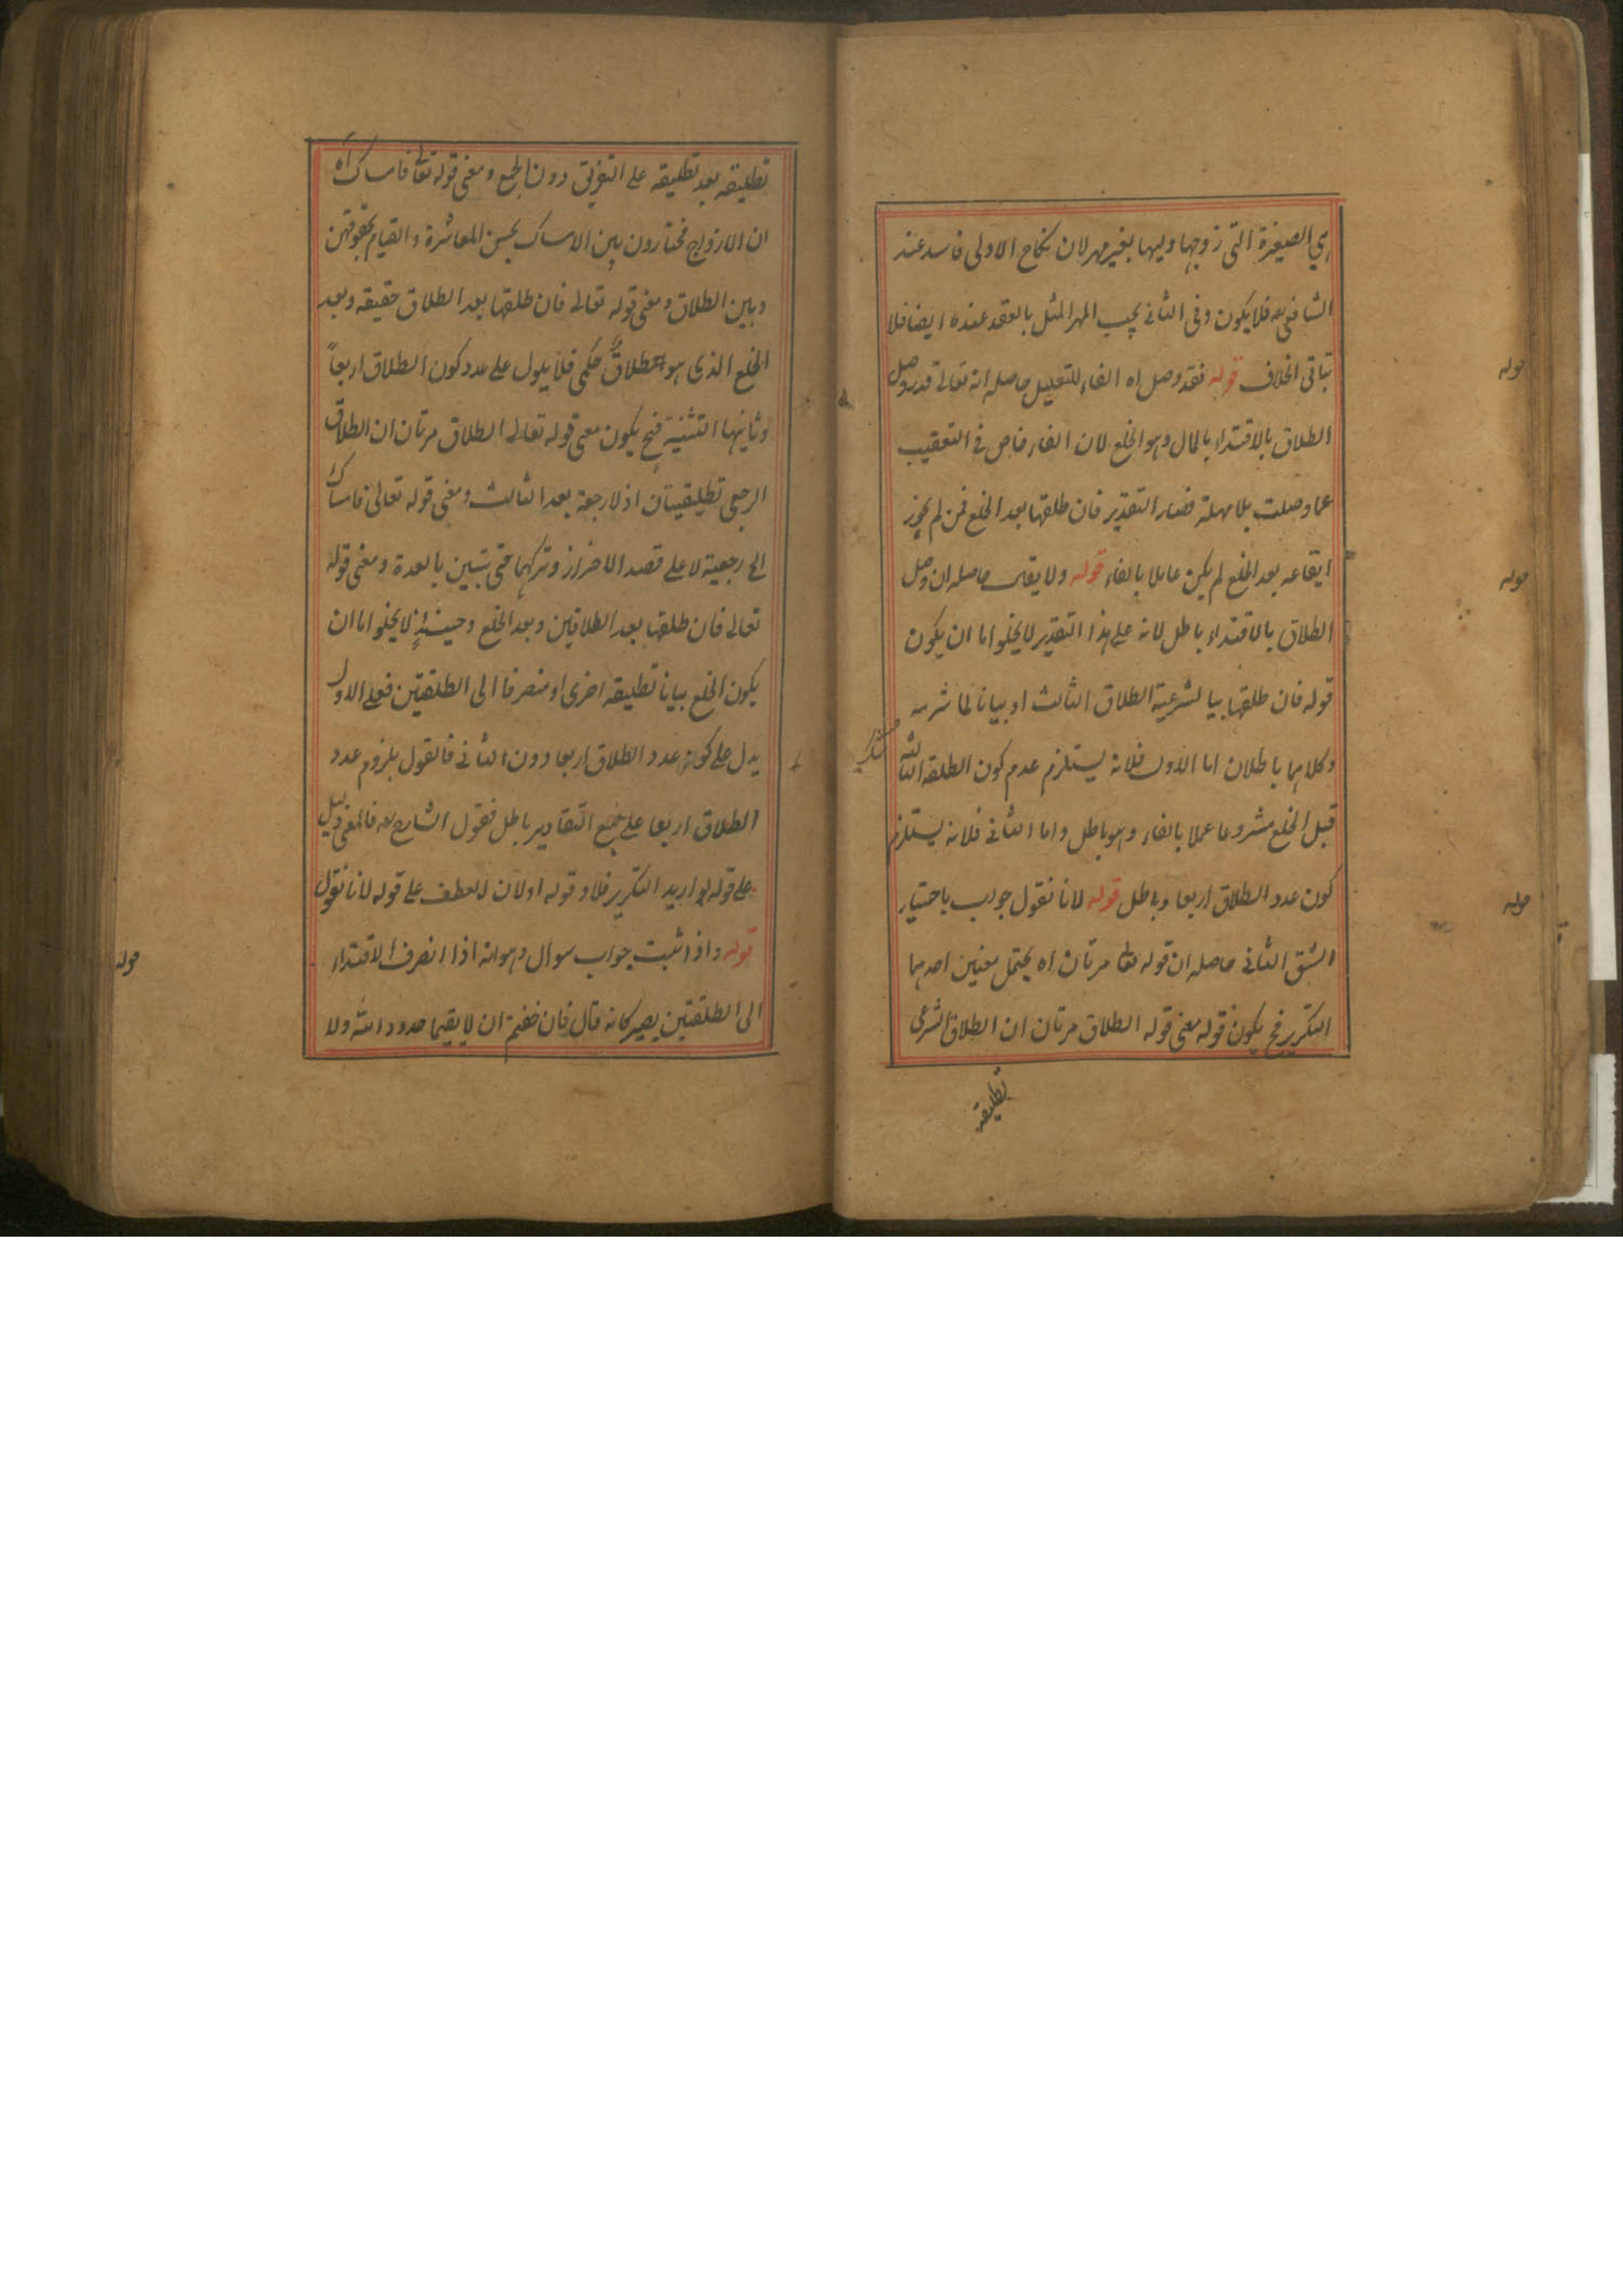 هي الصغيرة التي زوجها وليها بغير مهر لان نكاح الاولى فاسد عند
الشافعي رحه فلا يكون وفي الثاني يجب المهر المثل بالعقد عنده ايضا فلا
يتاتى الخلاف قوله فقد وصل اه الفاء للتعليل حاصله انه تعالى قد وصل
الطلاق بالافتداء بالمال وهو الخلع لان الفاء خاص في التعقيب
عما وصلت بلا مهلة فصار التقدير فان طلقها بعد الخلع فمن لم يجوز
ايقاعه بعد الخلع لم يكن عاملا بالفاء قوله ولا يقال حاصله ان وصل
الطلاق بالافتداء باطل لانه على هذا التقدير لا يخلوا اما ان يكون
قوله فان طلقها بيا لشرعية الطلاق الثالث او بيانا لما شرعه
وكلاهما باطلان اما الاول فلانه يستلزم عدم كون الطلقة الثالثة
قبل الخلع مشروعا عملا بالفاء وهو باطل واما الثاني فلانه يستلزم
كون عدد الطلاق اربعا وباطل قوله لانا نقول جواب باختيار
الشق الثاني حاصله ان قوله تعا مرتان اه يحتمل معنين احدهما
التكرير فح يكون قوله معنى قوله الطلاق مرتان ان الطلاق الشرعي
تطليقه
قوله
قوله
قوله
تطليقه بعد تطليقه على التفريق دون الجمع ومعنى قوله تعالى فامساك اه
ان الازواج مختارون بين الامساك بحسن المعاشرة والقيام بحقوقهن
وبين الطلاق ومعنى قوله تعالى فان طلقها بعد الطلاق حقيقه وبعد
الخلع الذي هو طلاق حكمي فلا يدل على عدد كون الطلاق اربعاً
وثانيها التثنية فح يكون معنى قوله تعالى الطلاق مرتان ان الطلاق
الرجعي تطليقيتان اذ لا رجعة بعد الثالث ومعنى قوله تعالى فامساك
اي رجعية لا على قصد الاضرار وتركها حتى تبين بالعدة ومعنى قوله
تعالى فان طلقها بعد الطلاقين وبعد الخلع وحينئذٍ لا يخلوا اما ان
يكون الخلع بيانا تطليقه اخرى او منصرفا الى الطلقتين فعلى الاول
يدل على كون عدد الطلاق اربعا دون الثاني فالقول بلزوم عدد
الطلاق اربعا على جميع التقادير باطل فقول الشارح رحه فالمعنى دليل
على قوله لو اريد التكرير فلا وقوله او لان لعطف على قوله لانا نقول
قوله واذا ثبت جواب سوال وهو انه اذا انصرف الافتداء
الى الطلقتين يصير كانه قال فان خفتم ان لا يقيما حدود الله ولا
قوله